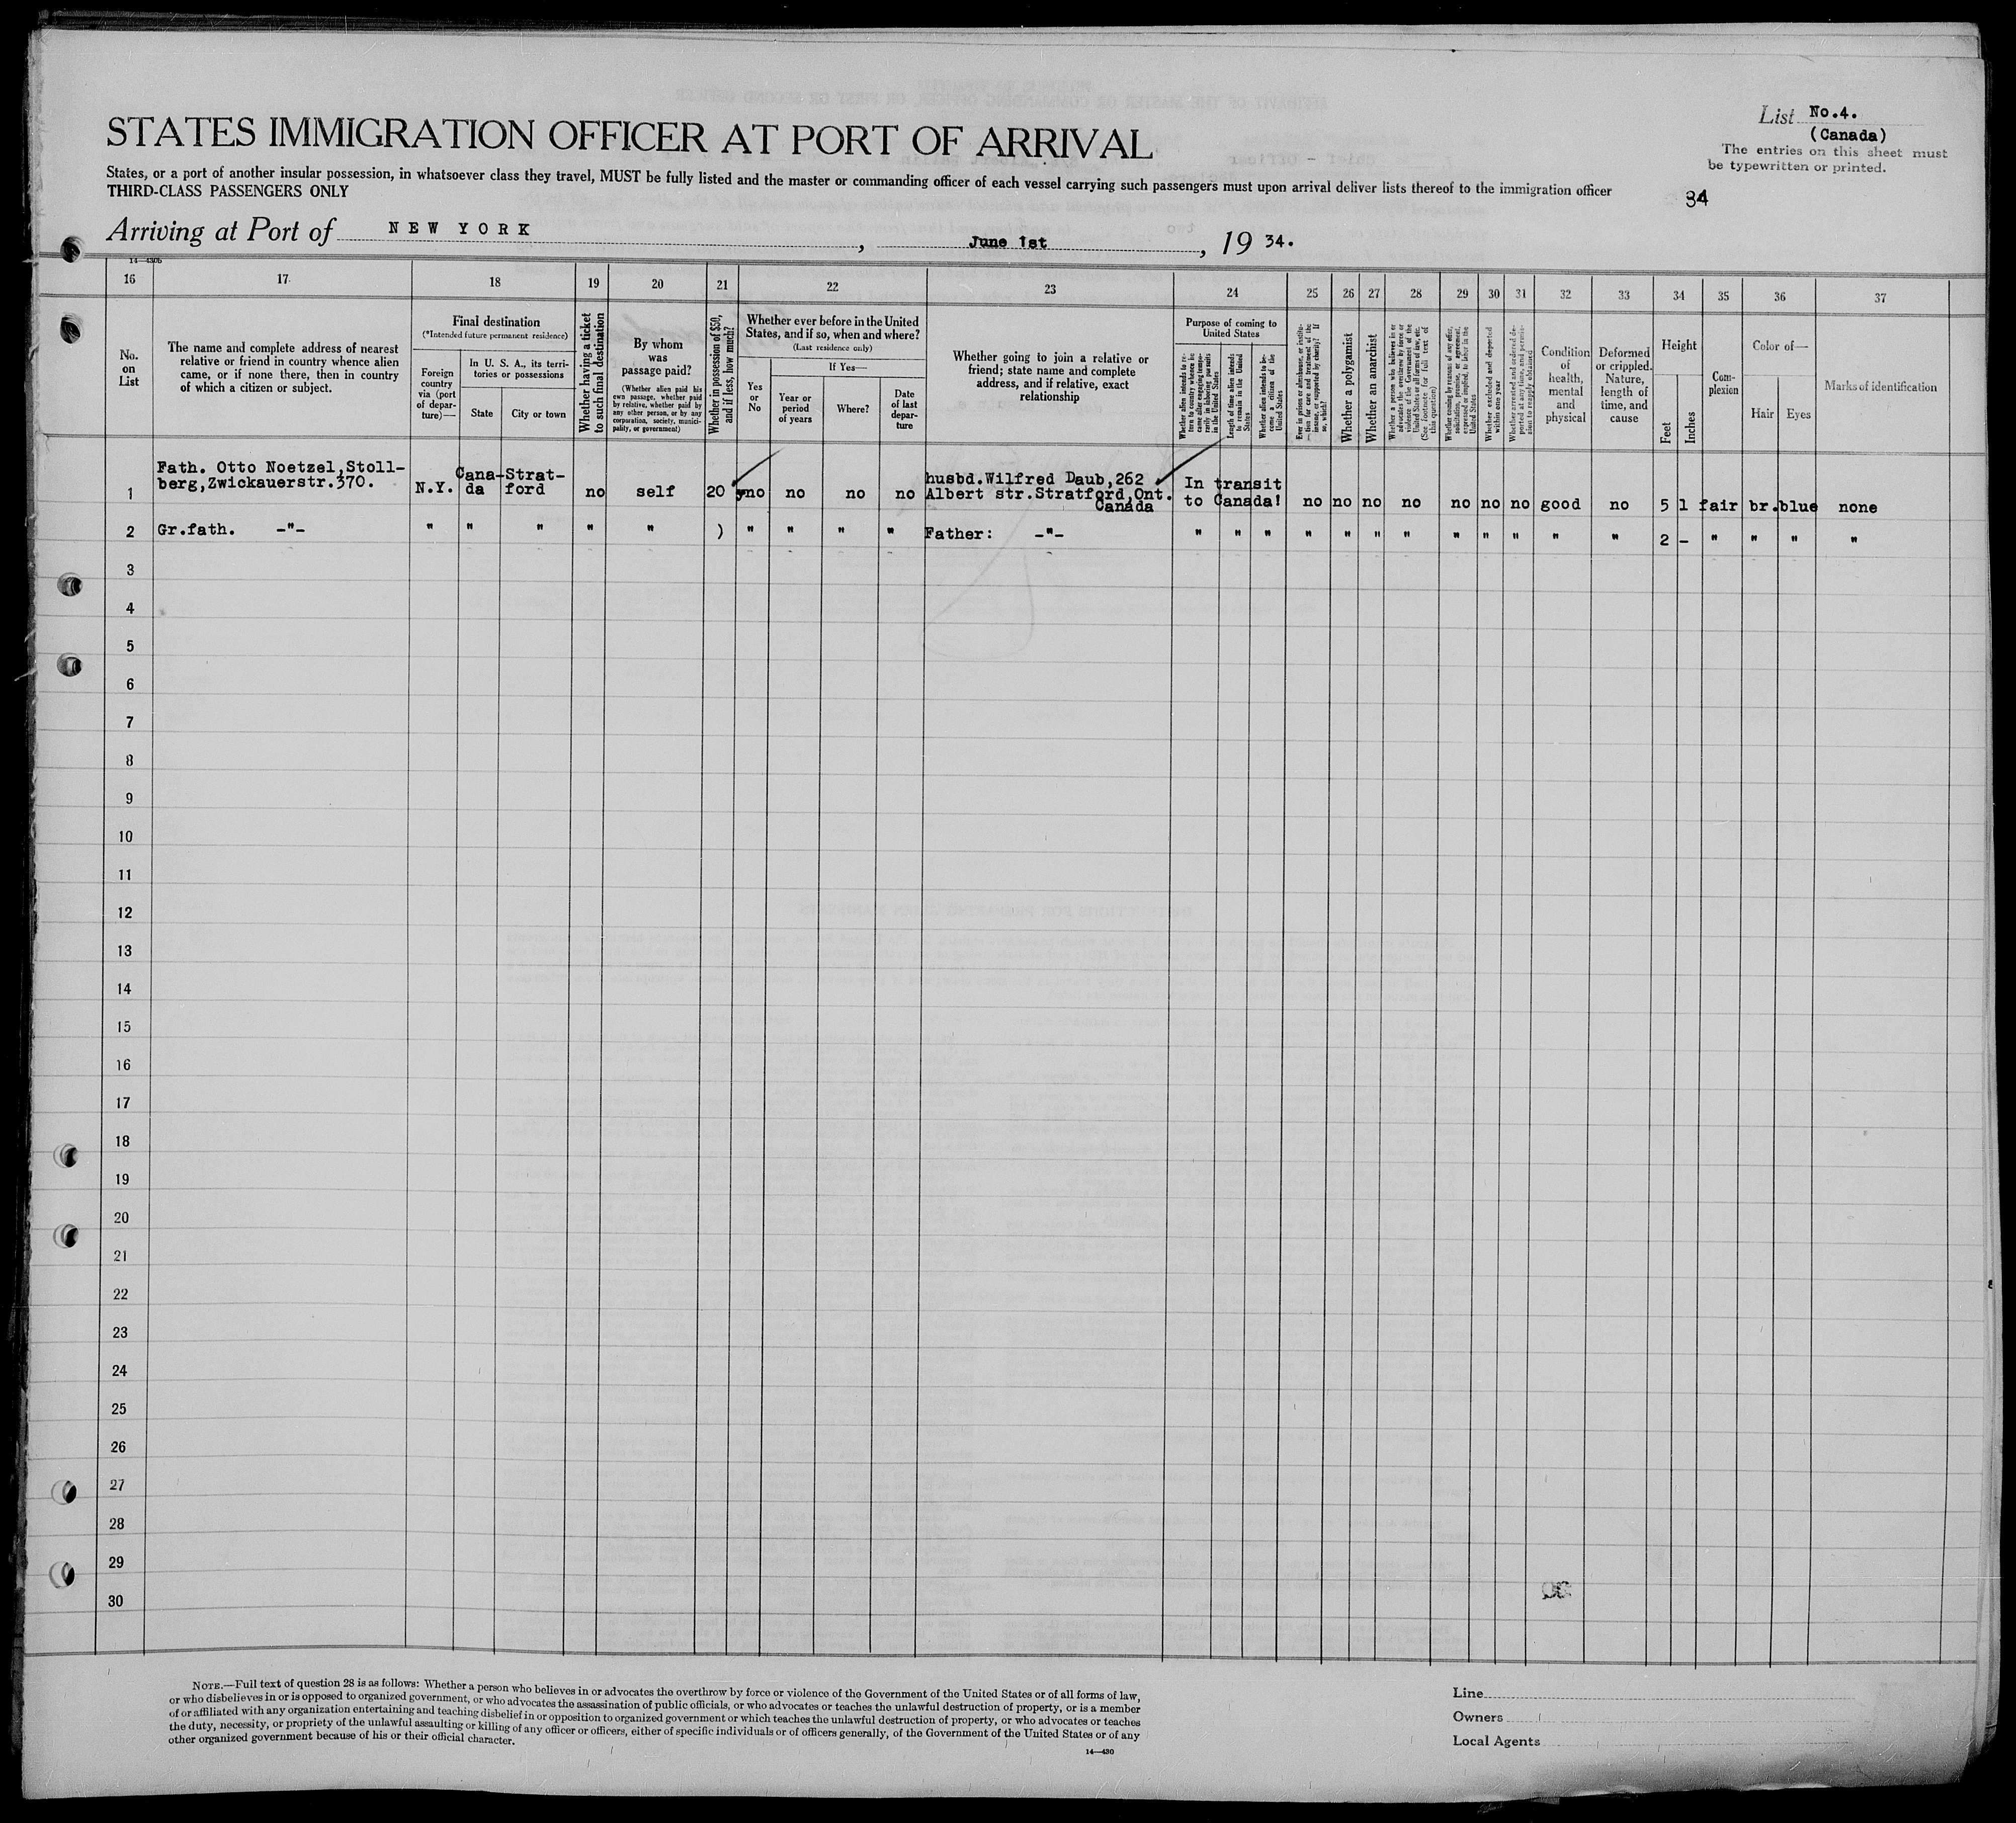 STATES IMMIGRATION OFFICER AT PORT OF ARRIVAL
List No.4.
(Canada)
The entries on this sheet must
be typewritten or printed.
States, or a port of another insular possession, in whatsoever class they travel, MUST be fully listed and the master or commanding officer of each vessel carrying such passengers must upon arrival deliver lists thereof to the immigration officer
THIRD-CLASS PASSENGERS ONLY
34
Arriving at Port of NEW YORK, June 1st, 19 34.
14—430b
16 17 18 19 20 21 22 23 24 25 26 27 28 29 30 31 32 33 34 35 36 37
No. on List
The name and complete address of nearest
relative or friend in country whence alien
came, or if none there, then in country
of which a citizen or subject.
Final destination
(*Intended future permanent residence)
Foreign
country
via (port
of depar-
ture)—
In U. S. A., its terri-
tories or possessions
State
City or town
Whether having a ticket
to such final destination
By whom
was
passage paid?
(Whether alien paid his
own passage, whether paid
by relative, whether paid by
any other person, or by any
corporation, society, munici-
pality, or government)
Whether in possession of $50,
and if less, how much?
Whether ever before in the United
States, and if so, when and where?
(Last residence only)
Yes
or
No
If Yes—
Year or
period
of years
Where?
Date
of last
depar-
ture
Whether going to join a relative or
friend; state name and complete
address, and if relative, exact
relationship
Purpose of coming to
United States
Whether alien intends to re-
turn to country whence he
came after engaging tempo-
rarily in laboring pursuits
in the United States
Length of time alien intends
to remain in the United
States
Whether alien intends to be-
come a citizen of the
United States
Ever in prison or almshouse, or institu-
tion for care and treatment of the
insane, or supported by charity? If
so, which?
Whether a polygamist
Whether an anarchist
Whether a person who believes in or
advocates the overthrow by force or
violence of the Government of the
United States or all forms of law, etc.
(See footnote for full text of
this question)
Whether coming by reason of any offer,
solicitation, promise, or agreement,
expressed or implied, to labor in the
United States
Whether excluded and deported
within one year
Whether arrested and ordered de-
ported at any time, and permis-
sion to reapply obtained
Condition
of
health,
mental
and
physical
Deformed
or crippled.
Nature,
length of
time, and
cause
Height
Feet
Inches
Com-
plexion
Color of—
Hair
Eyes
Marks of identification
1 Fath. Otto Noetzel,Stoll-
berg,Zwickauerstr.370.
N.Y. Cana-
da
Strat-
ford
no self 20 no no no no
husbd.Wilfred Daub,262
Albert str.Stratford,Ont.
Canada
In transit
to Canada!
no no no no no no no good no 5 1 fair br. blue none
2 Gr.fath. -"- " " " " " ) " " " " Father: -"- " " " " " " " " " " " " 2 - " " " "
3
4
5
6
7
8
9
10
11
12
13
14
15
16
17
18
19
20
21
22
23
24
25
26
27
28
29
30
NOTE.—Full text of question 28 is as follows: Whether a person who believes in or advocates the overthrow by force or violence of the Government of the United States or of all forms of law,
or who disbelieves in or is opposed to organized government, or who advocates the assassination of public officials, or who advocates or teaches the unlawful destruction of property, or is a member
of or affiliated with any organization entertaining and teaching disbelief in or opposition to organized government or which teaches the unlawful destruction of property, or who advocates or teaches
the duty, necessity, or propriety of the unlawful assaulting or killing of any officer or officers, either of specific individuals or of officers generally, of the Government of the United States or of any
other organized government because of his or their official character.
14—430
Line
Owners
Local Agents